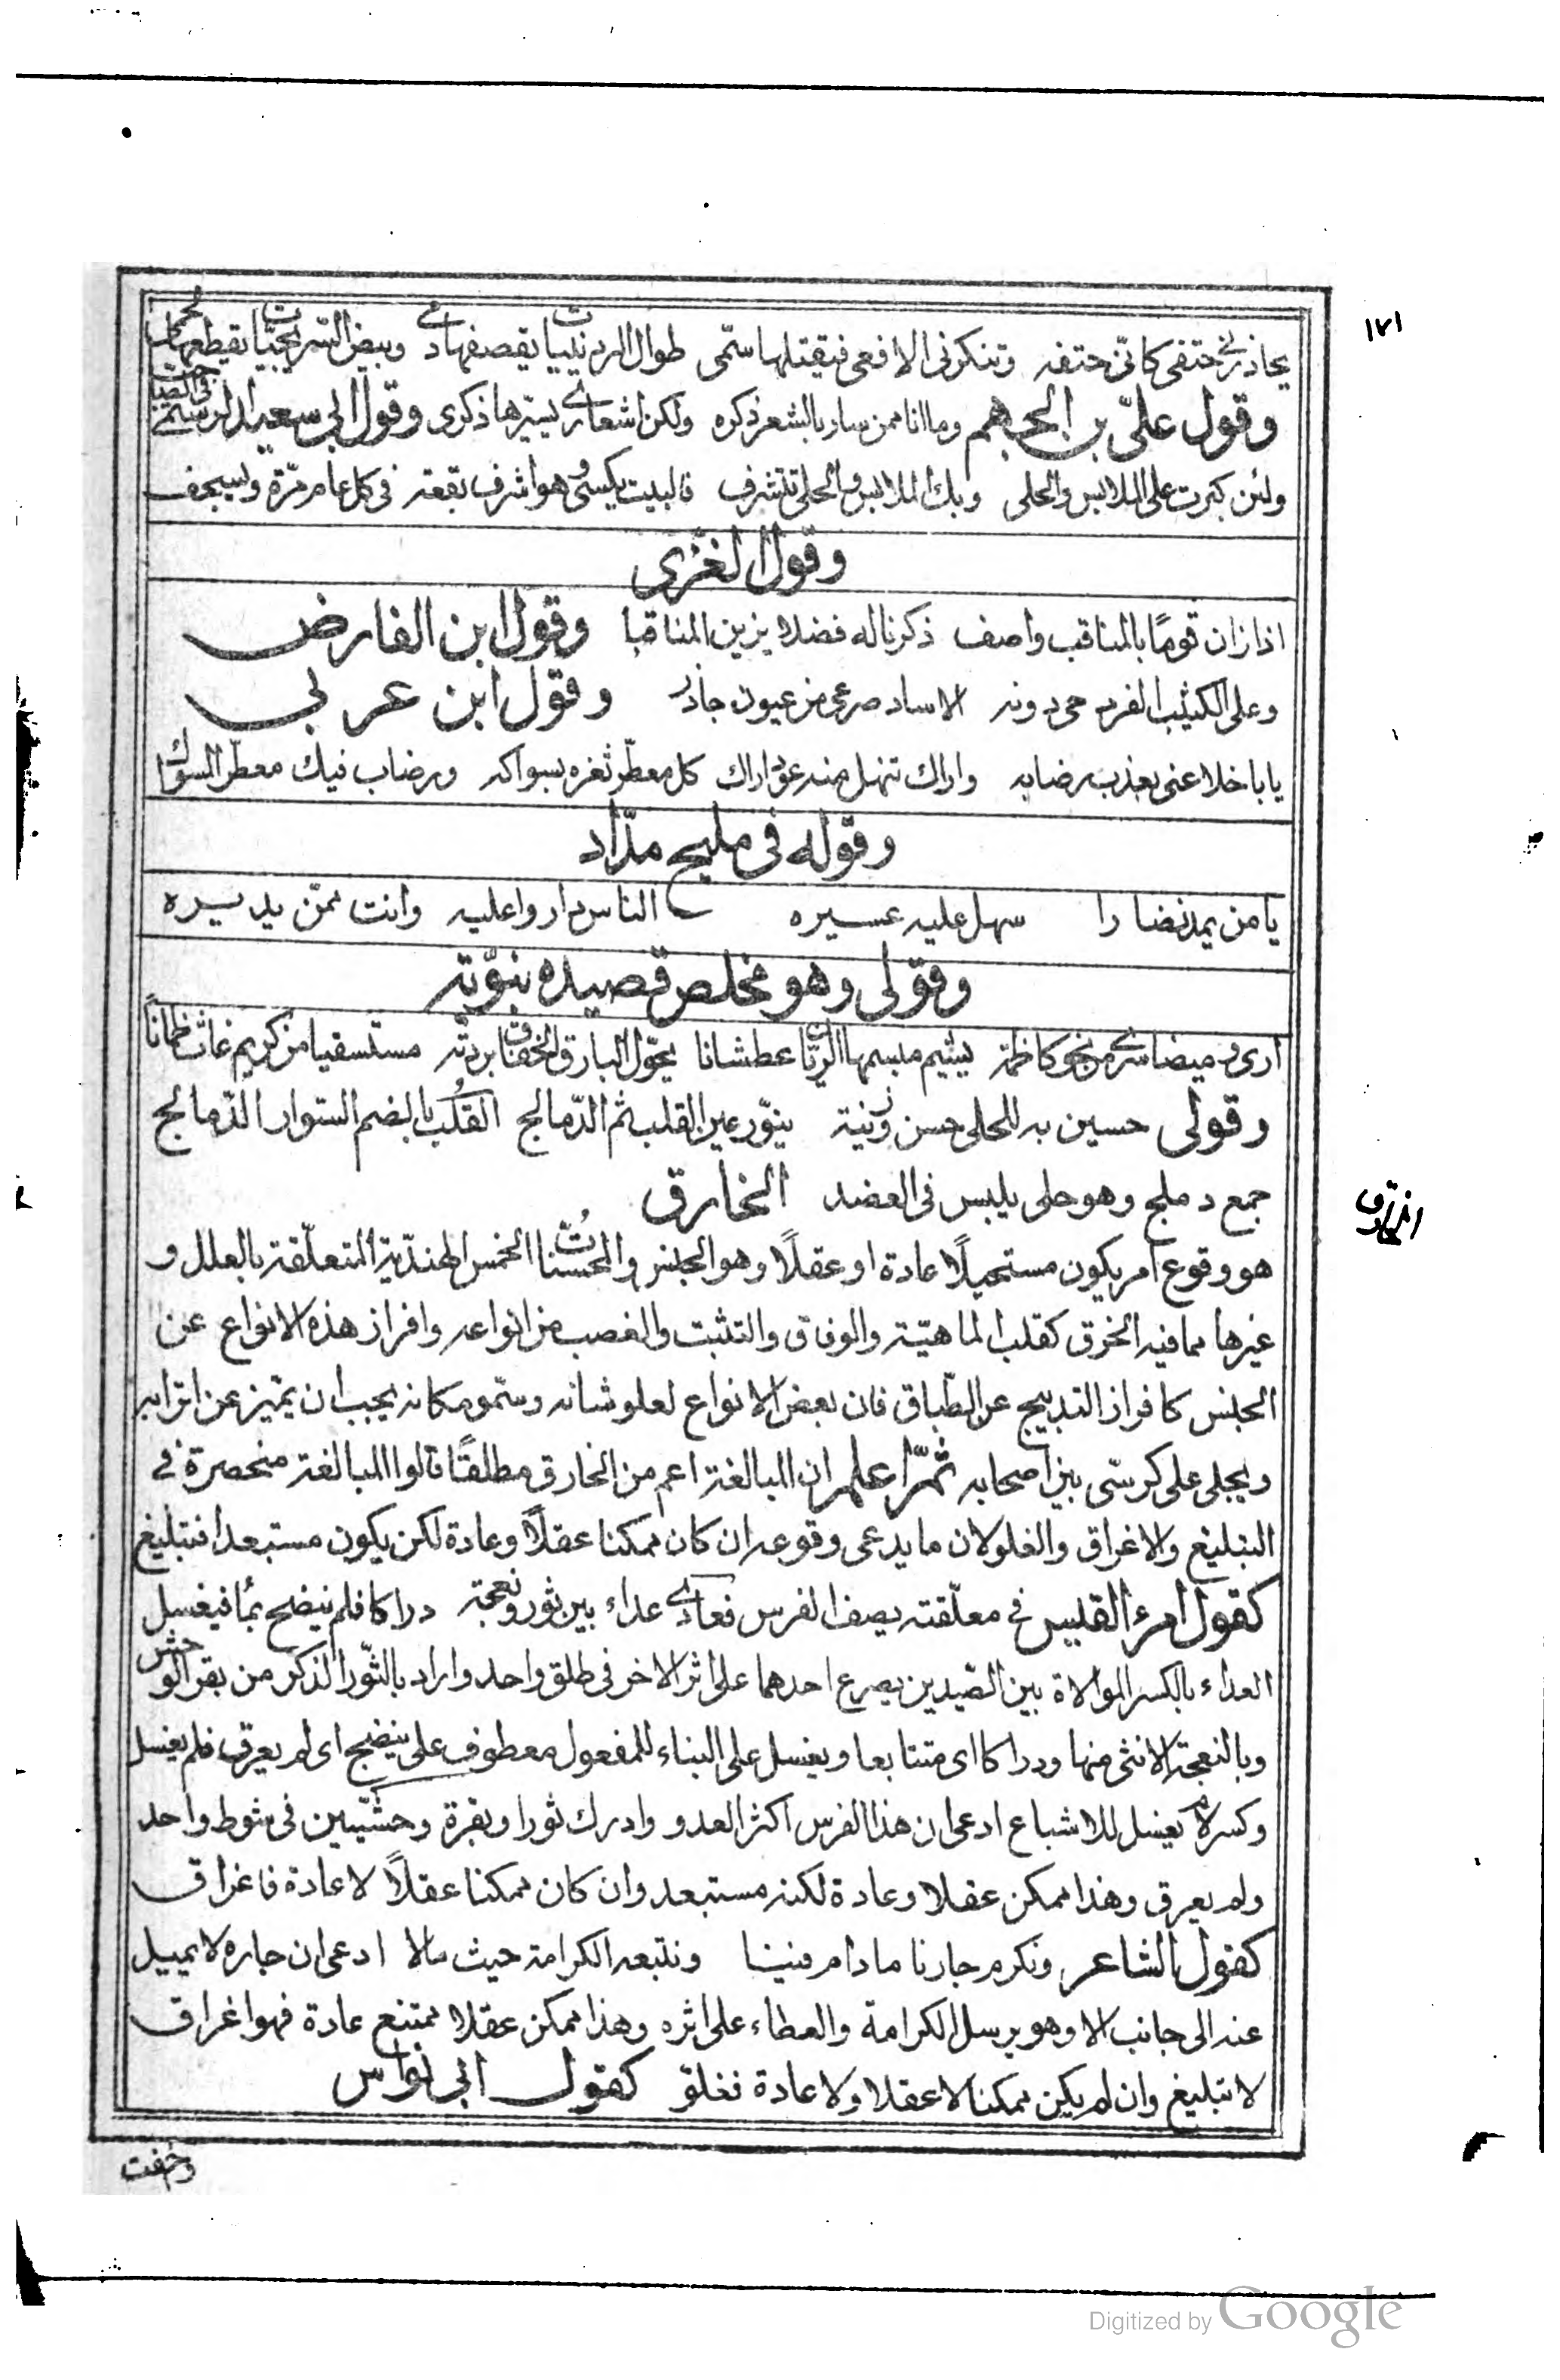 ١٧١
يحاذرني حتفي كاني حتفه وتنكزني الافعى فيقتلها سمّى طوال الردينيات يقصفها دمي وبيض السريجيات يقطعها لحمي
وقول عليّ بن الجهم وما انا ممن سار بالشعر ذكره ولكن اشعاري يسيّرها ذكرى وقول ابي سعيد الرستمي في الصاحب
ولئن كبرت على الملابس والحلى وبك الملابس والحلى تتشرف فالبيت يكسى وهو اشرف بقعة في كل عام مرّة ويسجف
وقول الغزّى
اذا زان قومًا بالمناقب واصف ذكرنا له فضلا يزين المناقبا وقول ابن الفارض
وعلى الكثيب الفرد حي دونه الاساد صرعى من عيون جاذر وقول ابن عربي
يا باخلا عنى بعذب رضابه واراك تنهل منه عود اراك كل معطّر ثغره بسواكه ورضاب فيك معطّر السواك
وقوله في مليح مدّاد
يا من يمد نضارا سهل عليه عسيره الناس داروا عليه وانت ممّن يديره
وقولى وهو مخلص قصيدة نبوّية
ارى وميضا سرى من نحو كاظمة يشيم مبسمها الريّان عطشانا يحوّل البارق الخفاق بردته مستسقيا من كريم غاث ظمانًا
وقولى حسين به للحلى حسن وزينة ينوّر عين القلب ثم الدّمالج القُلب بالضم السوار الدّمالج
جمع دملج وهو حلى يلبس في العضد الخارق
الخارق
هو وقوع امر يكون مستحيلًا عادة او عقلًا وهو الجنس والمحسنات الخمس الهندّية المتعلّقة بالعلل و
غيرها مما فيه الخرق كقلب الماهيّة والوفاق والتثبت والغصب من انواعه وافراز هذه الانواع عن
الجنس كافراز التدبيج عن الطّباق فان بعض الانواع لعلو شانه وسمّو مكانه يجب ان يتميّز عن اترابه
ويجلى على كرسّى بين اصحابه ثمّ اعلم ان المبالغة اعم من الخارق مطلقًا قالوا المبالغة منحصرة في
التبليغ والاغراق والغلو لان ما يدعى وقوعه ان كان ممكنا عقلًا وعادة لكن يكون مستبعدا فتبليغ
كقول امرء القيس في معلّقته يصف الفرس فعادى عداء بين ثور ونعجة دراكا فلم ينضح بمأ فيغسل
العداء بالكسر الموالاة بين الصّيدين يصرع احدهما على اثر الاخر في طلق واحد واراد بالثّور الذكر من بقر الوحش
وبالنعجة الانثى منها ودراكا اى متتابعا ويغسل على البناء للمفعول معطوف على ينضح اى لم يعرق فلم يغسل
وكسر لام يغسل للاشباع ادعى ان هذا الفرس اكثر العدو وادرك ثورا وبقرة وحشّيين في شوط واحد
ولم يعرق وهذا ممكن عقلا وعادة لكنه مستبعد وان كان ممكنا عقلًا لا عادة فاغراق
كقول الشاعر ونكرم جارنا ما دام فينا ونتبعه الكرامة حيث مالا ادعى ان جاره لا يميل
عنه الى جانب الا وهو يرسل الكرامة والعطاء على اثره وهذا ممكن عقلا ممتنع عادة فهو اغراق
لا تبليغ وان لم يكن ممكنا لا عقلا ولا عادة فغلو كقول ابي نواس
واخفت
Digitized by Google